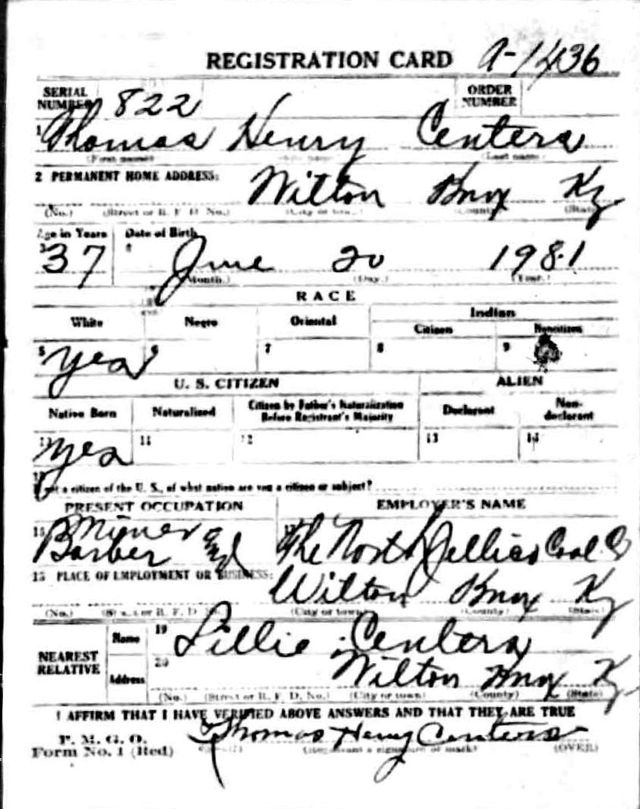 REGISTRATION CARD A-1436
SERIAL NUMBER 822 ORDER NUMBER
1 Thomas Henry Centers
(First name) (Last name)
2 PERMANENT HOME ADDRESS:
Wilton Knox Ky
(No.) (Street or R. F. D. No.) (City or town) (County) (State)
Age in Years Date of Birth
37 June 20 1981
(Month.) (Day.) (Year.)
RACE
White Negro Oriental Indian
Citizen Noncitizen
5 yes 6 7 8 9
U. S. CITIZEN ALIEN
Native Born Naturalized Citizen by Father's Naturalization Before Registrant's Majority Declarant Non-declarant
yes 11 12 13 14
not a citizen of the U. S., of what nation are you a citizen or subject?
PRESENT OCCUPATION EMPLOYER'S NAME
Miner and Barber The North Jellico Coal Co
PLACE OF EMPLOYMENT OR BUSINESS:
Wilton Knox Ky
(No.) (Street or R. F. D. No.) (City or town) (County) (State)
NEAREST RELATIVE
Name 19 Lillie Centers
Address 20 Wilton Knox Ky
(No.) (Street or R. F. D. No.) (City or town) (County) (State)
I AFFIRM THAT I HAVE VERIFIED ABOVE ANSWERS AND THAT THEY ARE TRUE
P. M. G. O.
Form No. 1 (Red) Thomas Henry Centers
(Registrant's signature or mark) (OVER)